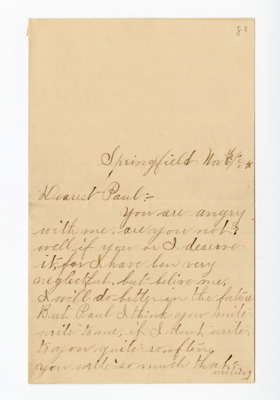 80
Springfield Nov
Dearest Paul:-
You are angry
with me, are you not?
well if you are I deserve
it, for I have ben very
neglectful, but belive me,
I will do better in the future
But Paul I think you mite
write to me, if I dont write
to you quite so often
you write so much that